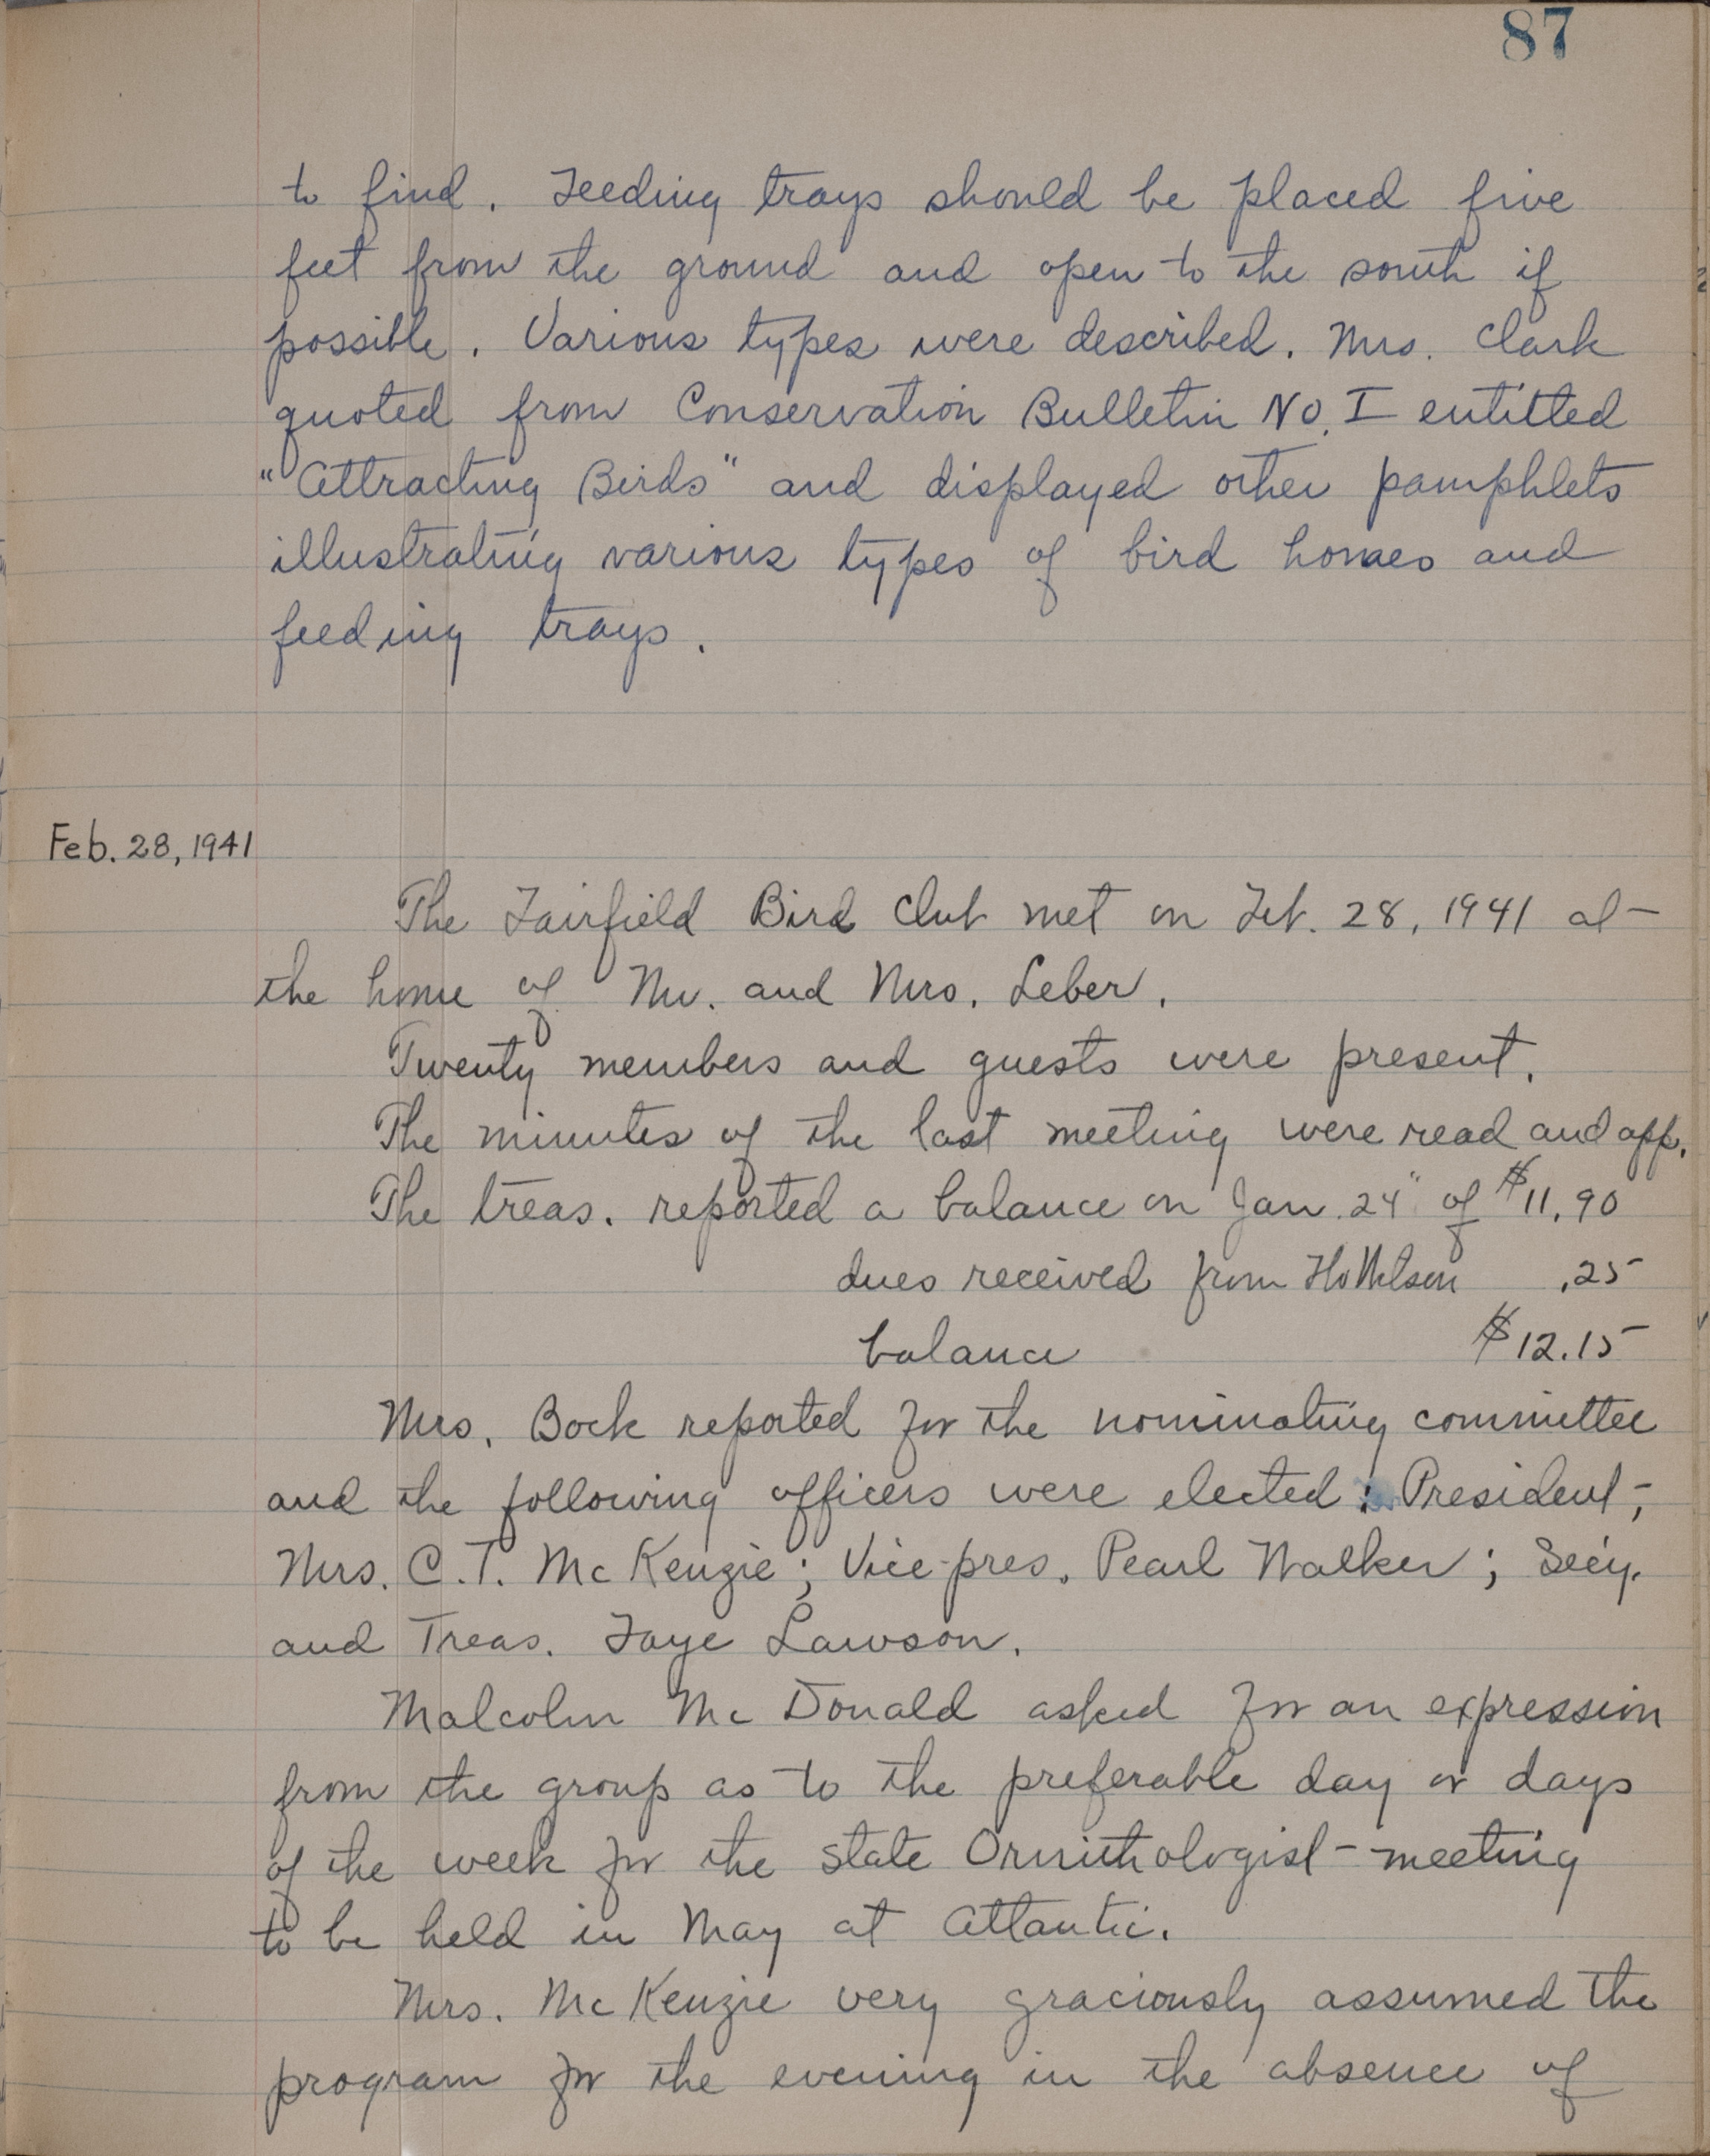 87
to find. Feeding trays should be placed five
feet from the ground and open to the south if
possible. Various types were described. Mrs. Clark
quoted from Conservation Bulletin No. I entitled
"Attracting Birds" and displayed other pamphlets
illustrating various types of bird homes and
feeding trays.
Feb. 28, 1941
The Fairfield Bird Club met on Feb. 28, 1941 at
the home of Mr. and Mrs. Leber.
Twenty members and guests were present.
The minutes of the last meeting were read and app.
The treas. reported a balance on Jan. 24" of $11.90
dues received from .25
balance $12.15
Mrs. Bock reported for the nominating committee
and the following officers were elected: President,
Mrs. C. T. McKenzie; Vice-pres. Pearl Walker; Sec'y.
and Treas. Faye Lawson.
Malcolm McDonald asked for an expression
from the group as to the preferable day or days
of the week for the State Ornithologist meeting
to be held in May at Atlantic.
Mrs. McKenzie very graciously assumed the
program for the evening in the absence of